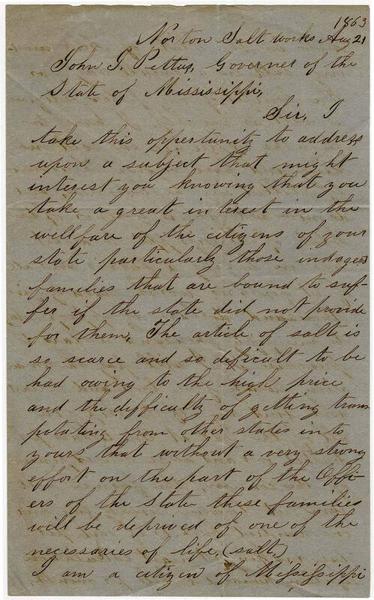 1863
Norton Salt works Aug 21
John J. Pettus, Governer of the
State of Mississippi,
Sir, I
take this oppertunity to address
upon a subject that might
interest you knowing that you
take a great interest in the
wellfare of the citizens of your
state particularly those
families that are bound to suf-
fer if the state did not provide
for them. The article of salt is
so scarce and so difficult to be
had owing to the high price
and the difficulty of getting trans
potating from other states in to
yours that without a very strong
effort on the part of the Offi
ers of the State these families
will be deprived of one of the
necessaries of life, (salt.)
I am a citizen of Mississippi